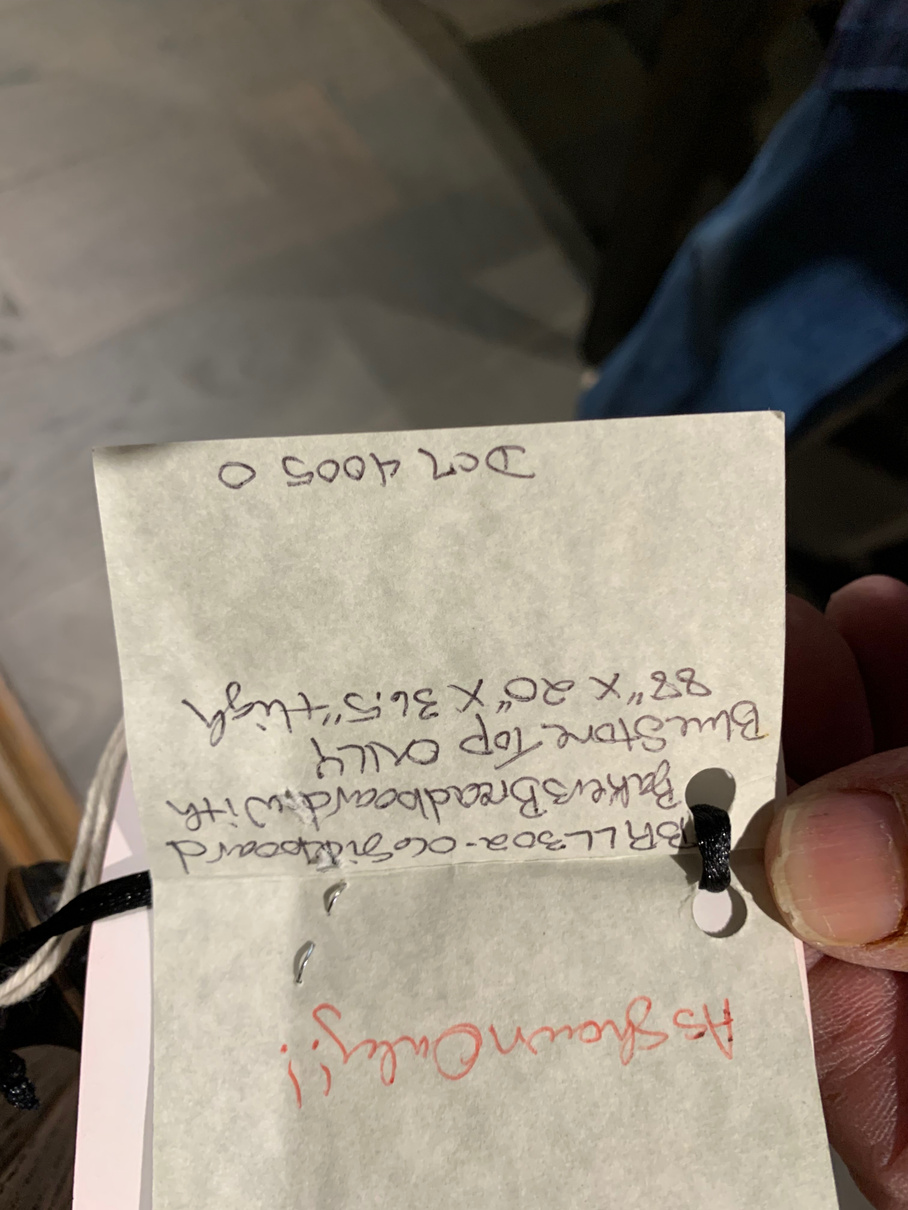 As Shown Only!!
BRLL302-006 Sideboard
Bakers Breadboard with
Blue Stone Top ONLY
88" X 20" X 36.5" High
4005 0